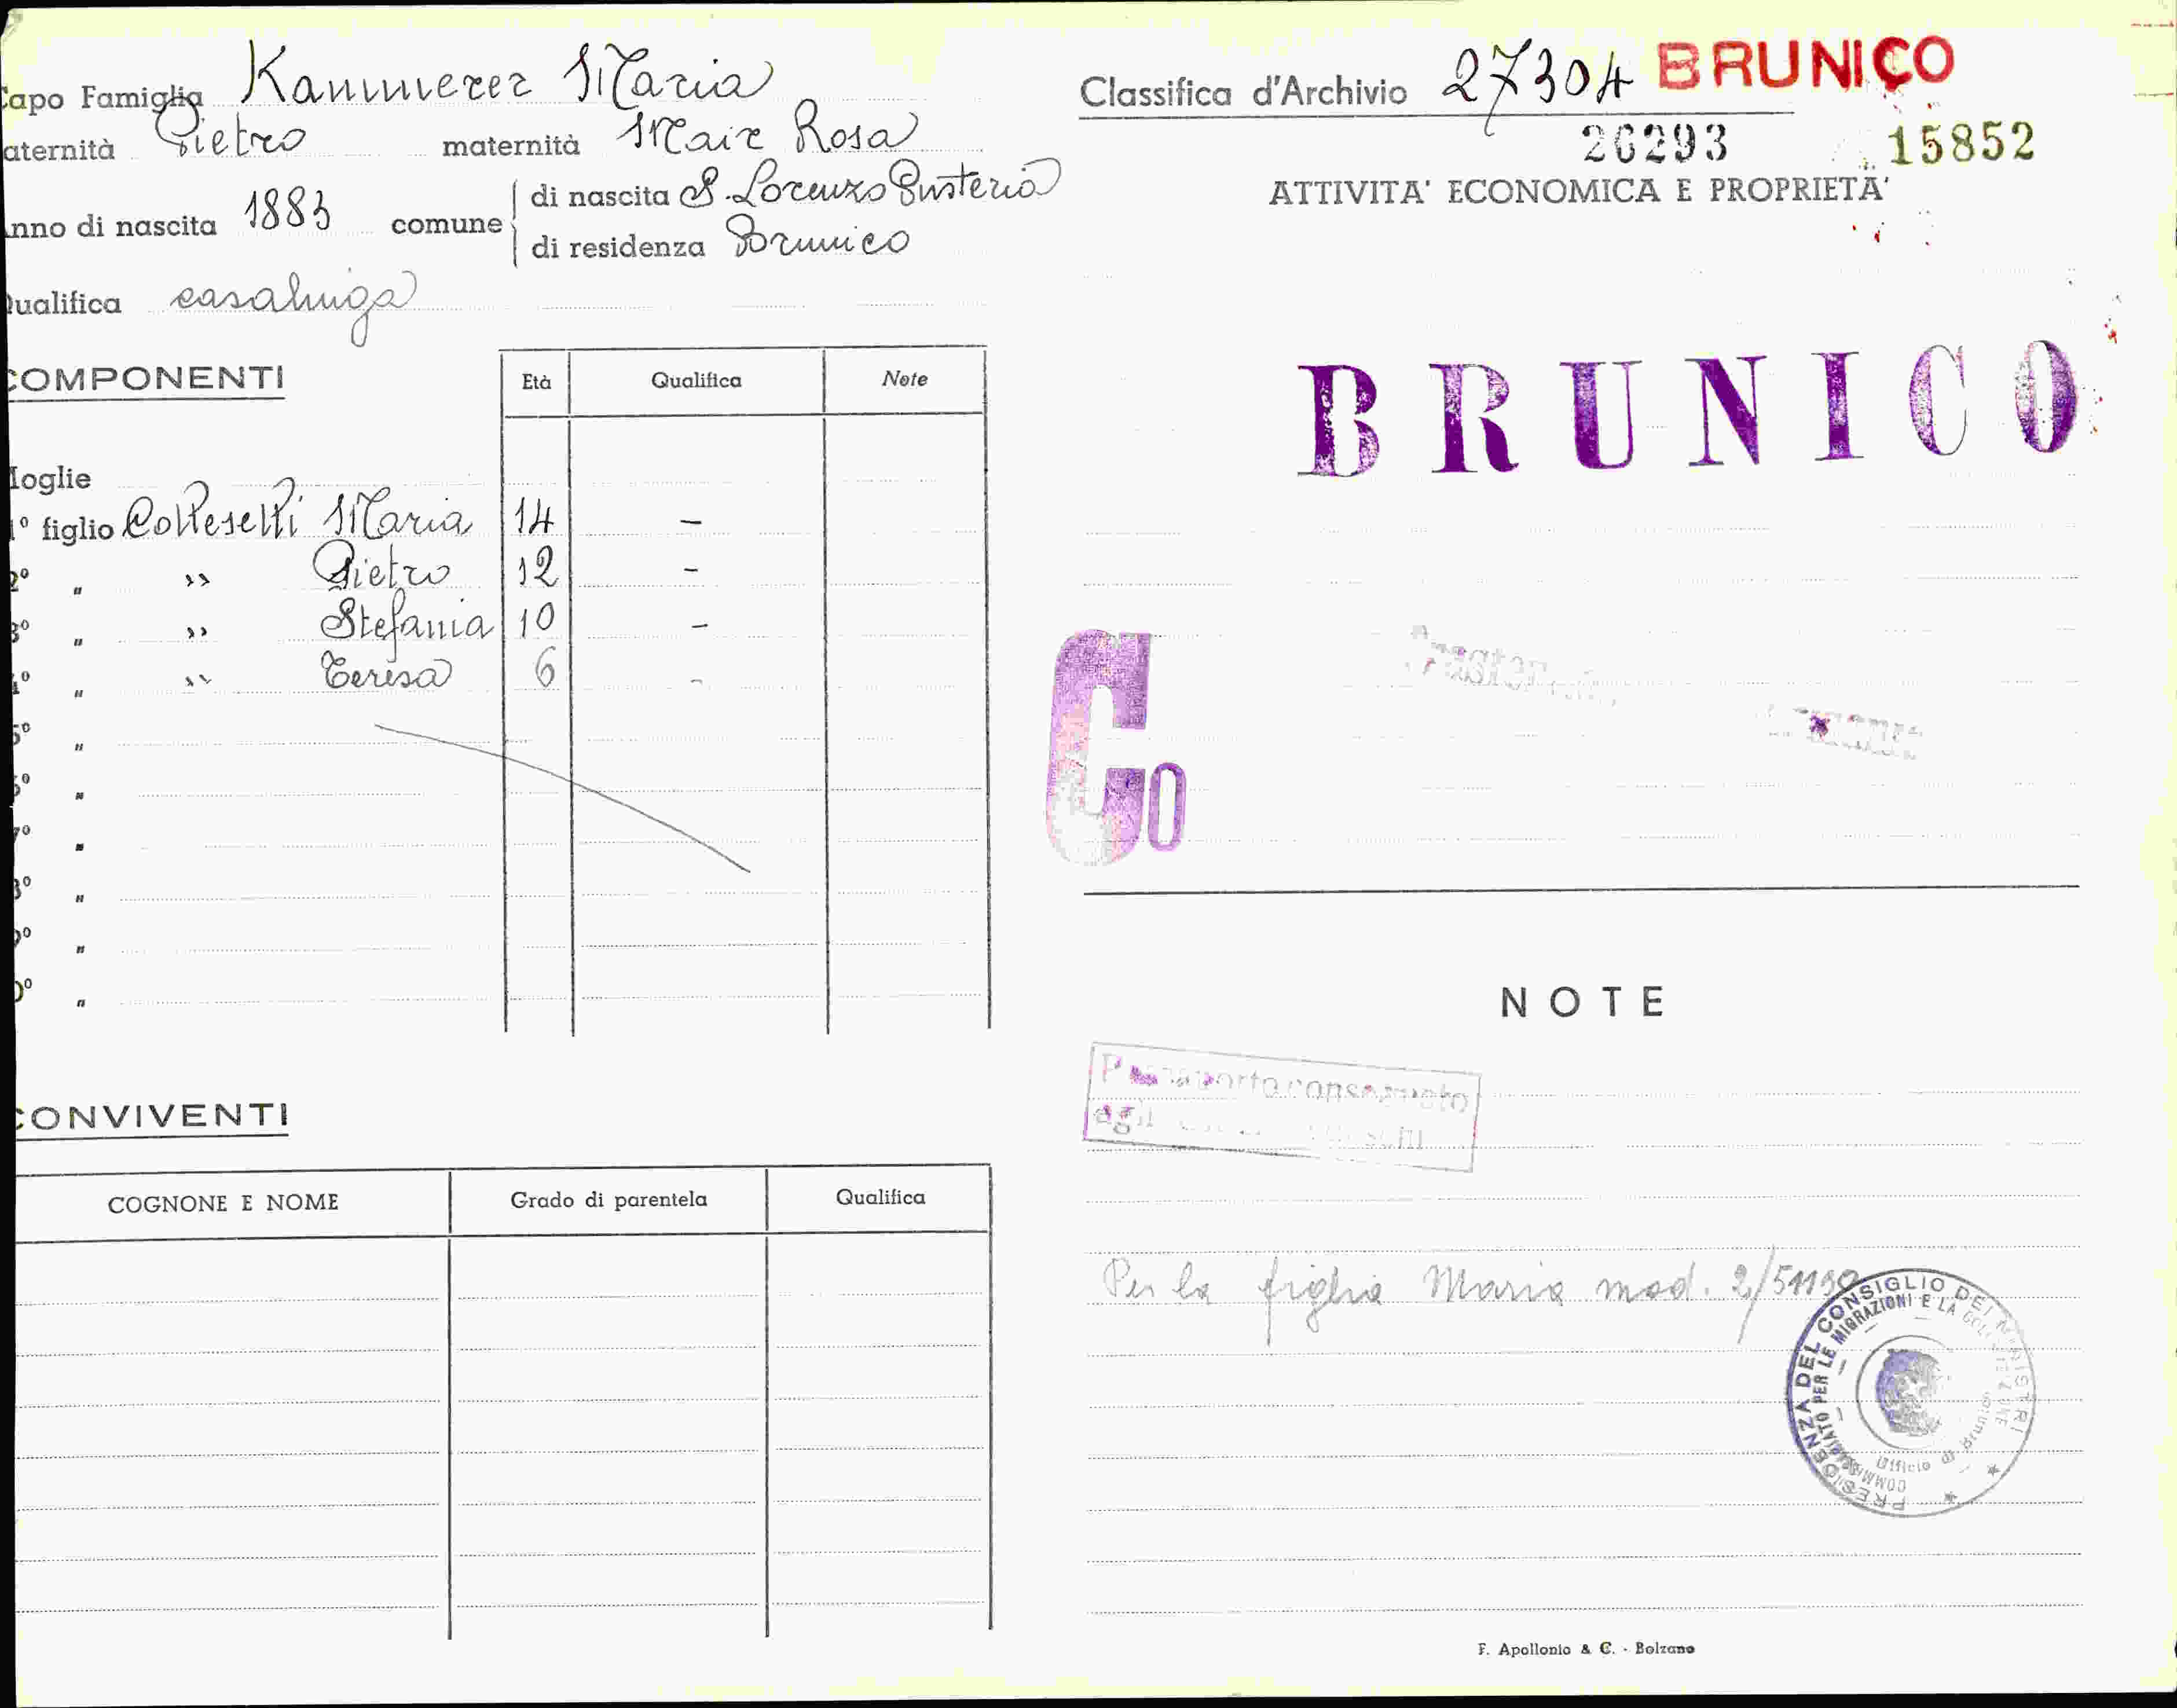 Capo Famiglia Kammerer Maria
aternità Pietro maternità Mair Rosa
nno di nascita 1883 comune di nascita S. Lorenzo Pusteria
di residenza Brunico
ualifica casalinga
COMPONENTI
Età Qualifica Note
Moglie
1º figlio Colleselli Maria 14 –
2º " " Pietro 12 –
3º " " Stefania 10 –
4º " " Teresa 6 –
5º "
6º "
7º "
8º "
9º "
0º "
CONVIVENTI
COGNONE E NOME Grado di parentela Qualifica
Classifica d'Archivio 27304 BRUNICO
26293 15852
ATTIVITA' ECONOMICA E PROPRIETA'
BRUNICO
Co
NOTE
Passaporto consegnato
agli
Per la figlia Maria mod. 2/51139
PRESIDENZA DEL CONSIGLIO DEI MINISTRI
COMMISSARIATO PER LE MIGRAZIONI E LA COLONIZZAZIONE
Ufficio di Brunico
F. Apollonio & C. - Bolzano